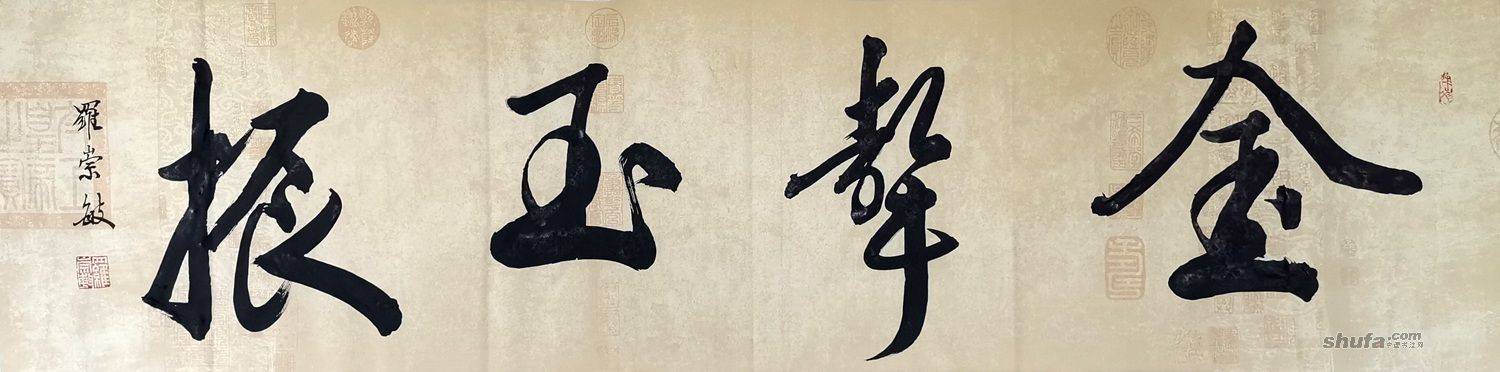 金聲玉振
羅崇敏
shufa.com
中国书法网